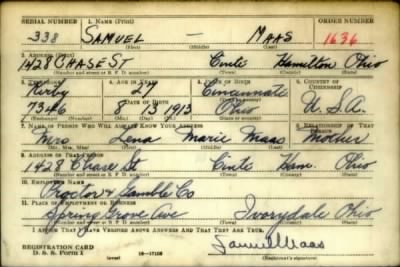 SERIAL NUMBER 1. NAME (Print) ORDER NUMBER
338 SAMUEL — MAAS 1636
(First) (Middle) (Last)
2. ADDRESS (Print)
1428 CHASE ST Cinti Hamilton Ohio
(Number and street or R. F. D. number) (Town) (County) (State)
3. TELEPHONE 4. AGE IN YEARS 5. PLACE OF BIRTH 6. COUNTRY OF CITIZENSHIP
Kirby 27 Cincinnati
7346 DATE OF BIRTH 8 13 1913 Ohio U.S.A.
(Exchange) (Number) (Mo.) (Day) (Yr.) (State or country)
7. NAME OF PERSON WHO WILL ALWAYS KNOW YOUR ADDRESS 8. RELATIONSHIP OF THAT PERSON
Mrs Lena Marie Maas Mother
(Mr., Mrs., Miss) (First) (Middle) (Last)
9. ADDRESS OF THAT PERSON
1428 Chase St Cinti Ham. Ohio
(Number and street or R. F. D. number) (Town) (County) (State)
10. EMPLOYER'S NAME
Procter & Gamble Co
11. PLACE OF EMPLOYMENT OR BUSINESS
Spring Grove Ave Ivorydale Ohio
(Number and street or R. F. D. number) (Town) (County) (State)
I AFFIRM THAT I HAVE VERIFIED ABOVE ANSWERS AND THAT THEY ARE TRUE.
Samuel Maas
REGISTRATION CARD
D. S. S. Form 1 (over) 16—17105 (Registrant's signature)